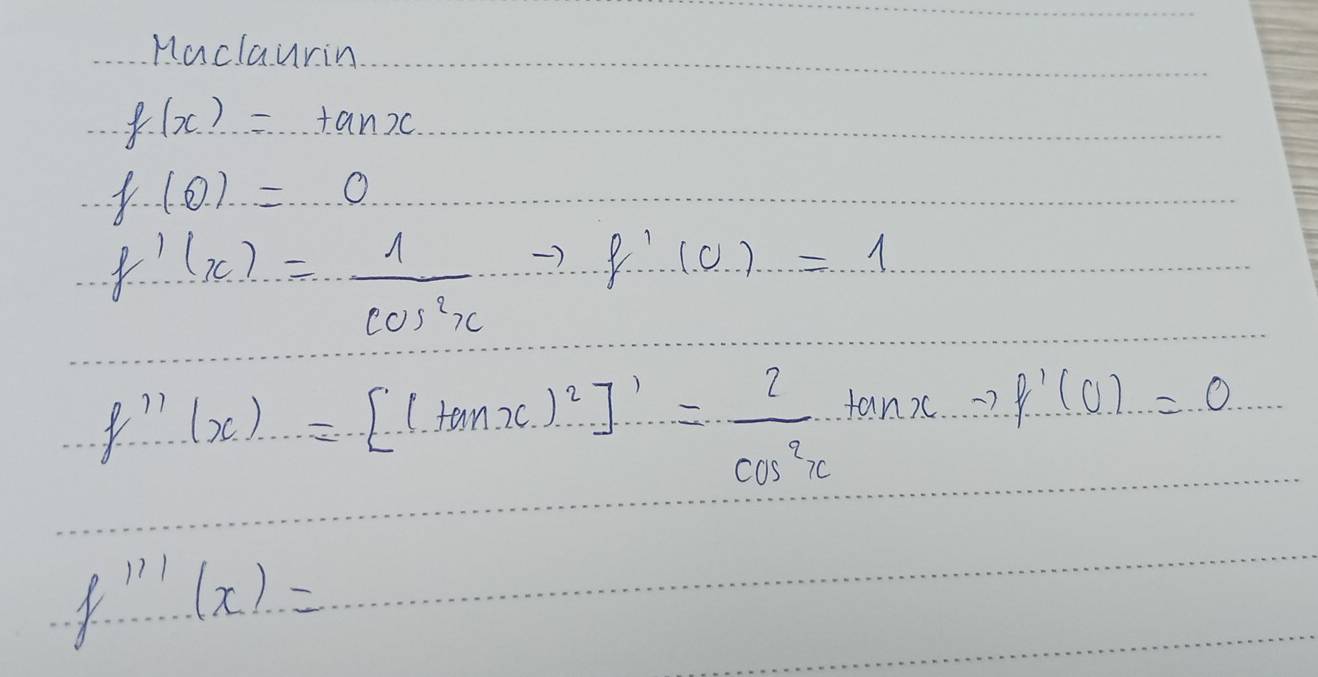 Maclaurin
f(x) = tanx
f(0) = 0
f'(x) = 1/cos²x → f'(0) = 1
f''(x) = [(tanx)²]' = 2/cos²x tanx → f'(0) = 0
f'''(x) =